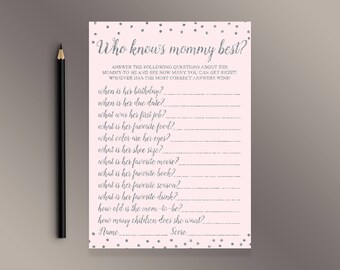 Who knows mommy best?
ANSWER THE FOLLOWING QUESTIONS ABOUT THE
MOMMY-TO-BE AND SEE HOW MANY YOU CAN GET RIGHT!
WHOEVER HAS THE MOST CORRECT ANSWERS WINS!
when is her birthday?
when is her due date?
what was her first job?
what is her favorite food?
what color are her eyes?
what is her shoe size?
what is her favorite movie?
what is her favorite book?
what is her favorite season?
what is her favorite drink?
how old is the mom-to-be?
how many children does she want?
Name Score